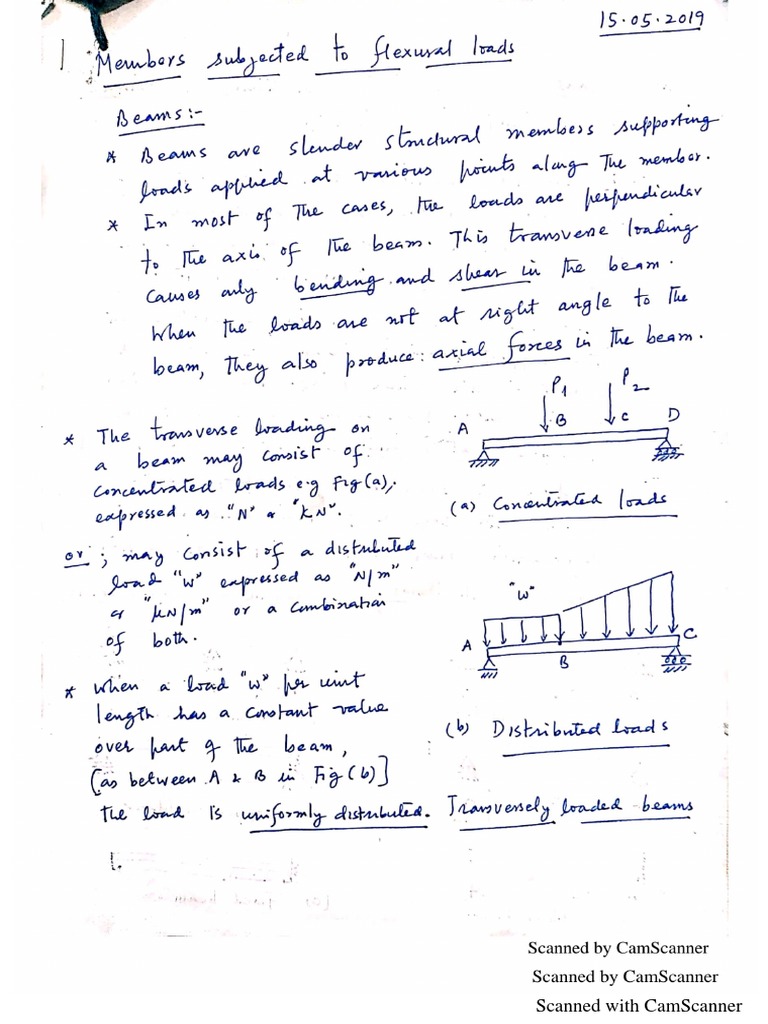 15.05.2019
1 Members subjected to flexural loads
Beams:-
* Beams are slender structural members supporting
loads applied at various points along The member.
* In most of The cases, the loads are perpendicular
to The axis of The beam. This transverse loading
causes only bending and shear in the beam.
When the loads are not at right angle to The
beam, They also produce axial forces in The beam.
* The transverse loading on
a beam may consist of
concentrated loads e.g Fig(a),
expressed as "N" or "kN".
P1 P2
A B C D
(a) Concentrated loads
or ; may consist of a distributed
load "W" expressed as "N/m"
or "kN/m" or a combination
of both.
"W"
A B C
* When a load "W" per unit
length has a constant value
over part of the beam,
[as between A & B in Fig (b)]
the load is uniformly distributed.
(b) Distributed loads
Transversely loaded beams
1.
Scanned by CamScanner
Scanned by CamScanner
Scanned with CamScanner